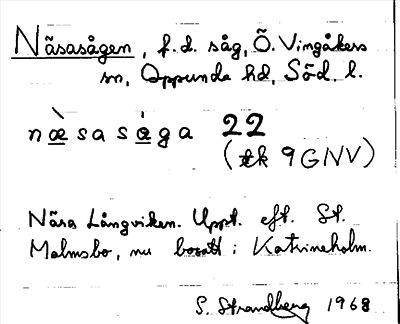 Näsasågen, f.d. såg, Ö. Vingåkers
sn, Oppunda hd, Söd. l.
næ̀sasága 22
(tk 9GNV)
Näsa Långviken. Uppt. eft. St.
Malmsbo, nu bosatt i Katrineholm.
S. Strandberg 1968